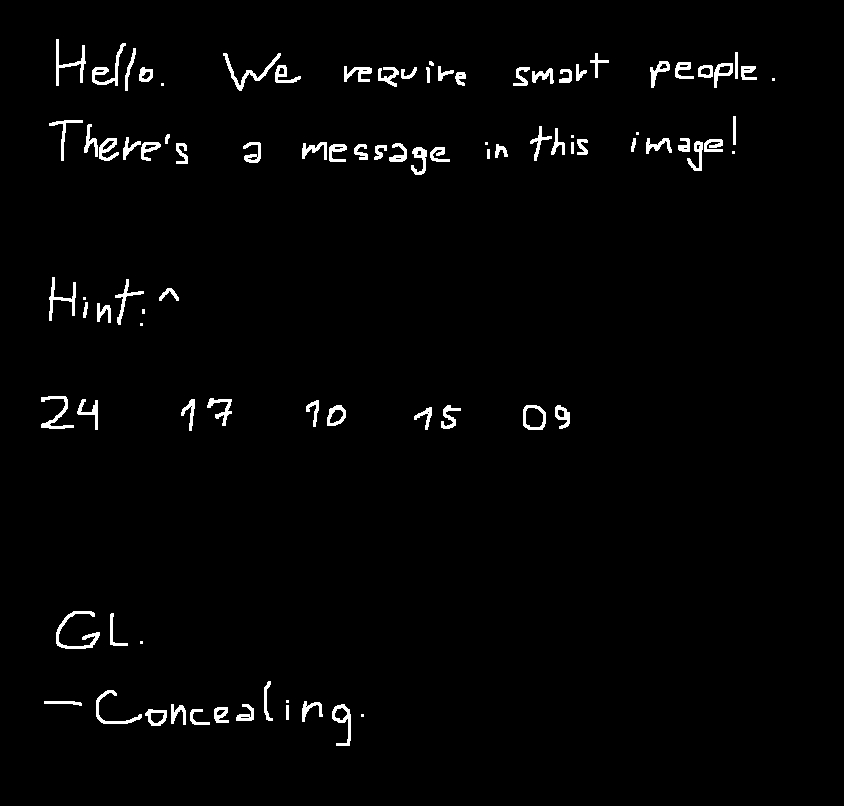 Hello. We require smart people.
There's a message in this image!
Hint:^
24 17 10 15 09
GL.
- Concealing.